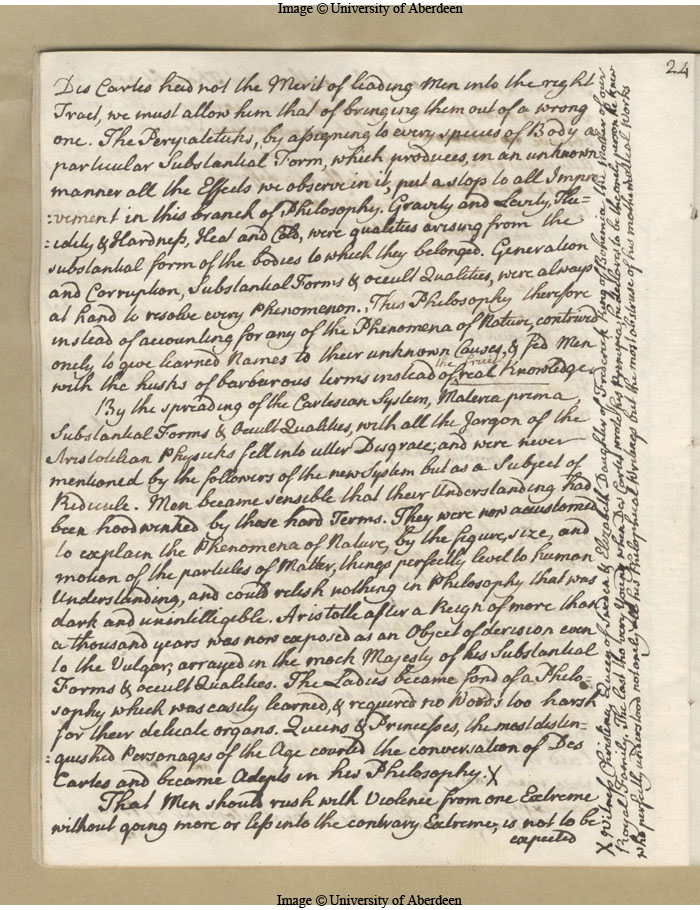 Image © University of Aberdeen
24
Des Cartes had not the Merit of leading Men into the right
Tract, we must allow him that of bringing them out of a wrong
one. The Peripateticks, by assigning to every species of Body a
particular Substantial Form, which produces, in an unknown
manner all the Effects we observe in it, put a stop to all Impro
:vement in this branch of Philosophy. Gravity and Levity, Flu=
:idity & Hardness, Heat and Cold, were qualities arising from the
substantial form of the bodies to which they belonged. Generation
and Corruption, Substantial Forms & occult Qualities, were always
at hand to resolve every Phenomenon. This Philosophy therefore
instead of accounting for any of the Phenomena of Nature, contrived
onely to give learned Names to their unknown Causes, & fed Men
with the husks of barbarous terms instead of the fruit of real Knowledge.
By the spreading of the Cartesian System, Materia prima,
Substantial Forms & Occult Qualities, with all the Jargon of the
Aristotelian Physicks fell into utter Disgrace; and were never
mentioned by the followers of the new System but as a Subject of
Ridicule. Men became sensible that their Understanding had
been hoodwinked by those hard Terms. They were now accustomed
to explain the Phenomena of Nature, by the figure, size, and
motion of the particles of Matter, things perfectly level to human
Understanding, and could relish nothing in Philosophy that was
dark and unintelligible. Aristotle after a Reign of more than
a thousand years was now exposed as an Object of derision even
to the Vulgar, arrayed in the mock Majesty of his Substantial
Forms & occult Qualities. The Ladies became fond of a Philo=
sophy which was easily learned, & required no Words too harsh
for their delicate organs. Queens & Princesses, the most distin=
:guished Personages of the Age courted the conversation of Des
Cartes and became Adepts in his Philosophy. X
That Men should rush with Violence from one Extreme
without going more or less into the contrary Extreme, is not to be
expected
X Witness Christina Queen of Sweden & Elizabeth Daughter of Frederick King of Bohemia the Mother of our
Royal Family. The last tho very Young when Des Cartes wrote his Principia, he declares to be the onely person he knew
who perfectly understood not onely all his Philosophical Writings but the most abstruse of his mathematical Works
Image © University of Aberdeen